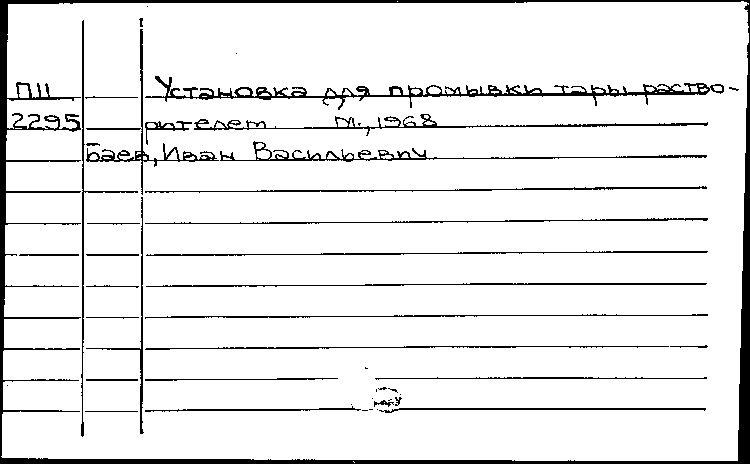 П11 Установка для промывки тары раство-
2295 рителем. М., 1968
Баев, Иван Васильевич